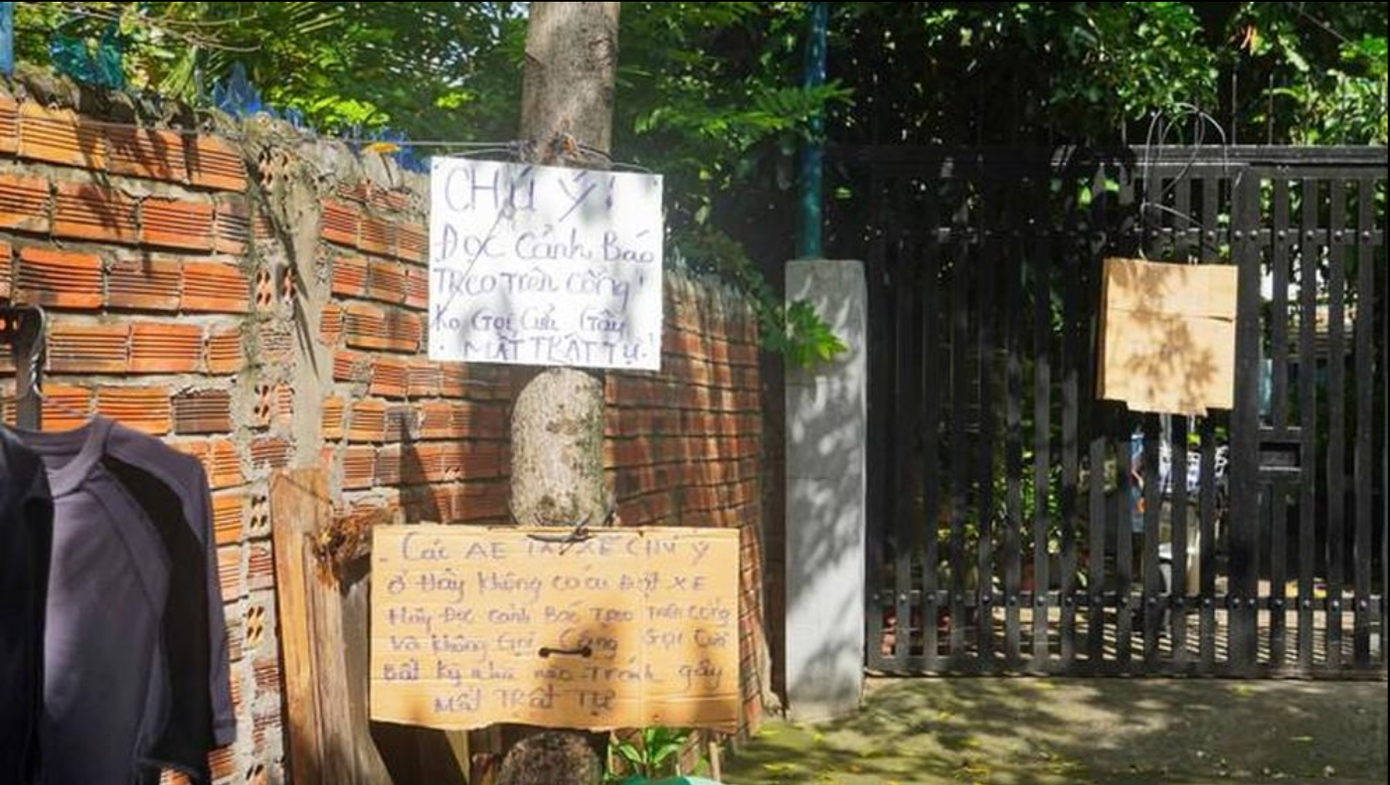 CHÚ Ý!
Đọc Cảnh Báo
Treo Trên Cổng!
Ko Gọi Cửa Gây
MẤT TRẬT TỰ!
- Các AE TÀI XẾ CHÚ Ý
ở Đây không có ai Đặt XE
Hãy Đọc Cảnh Báo Treo Trên Cổng
Và Không Gọi Cổng Gọi Cửa
Bất Kỳ nhà nào Tránh gây
MẤT TRẬT TỰ